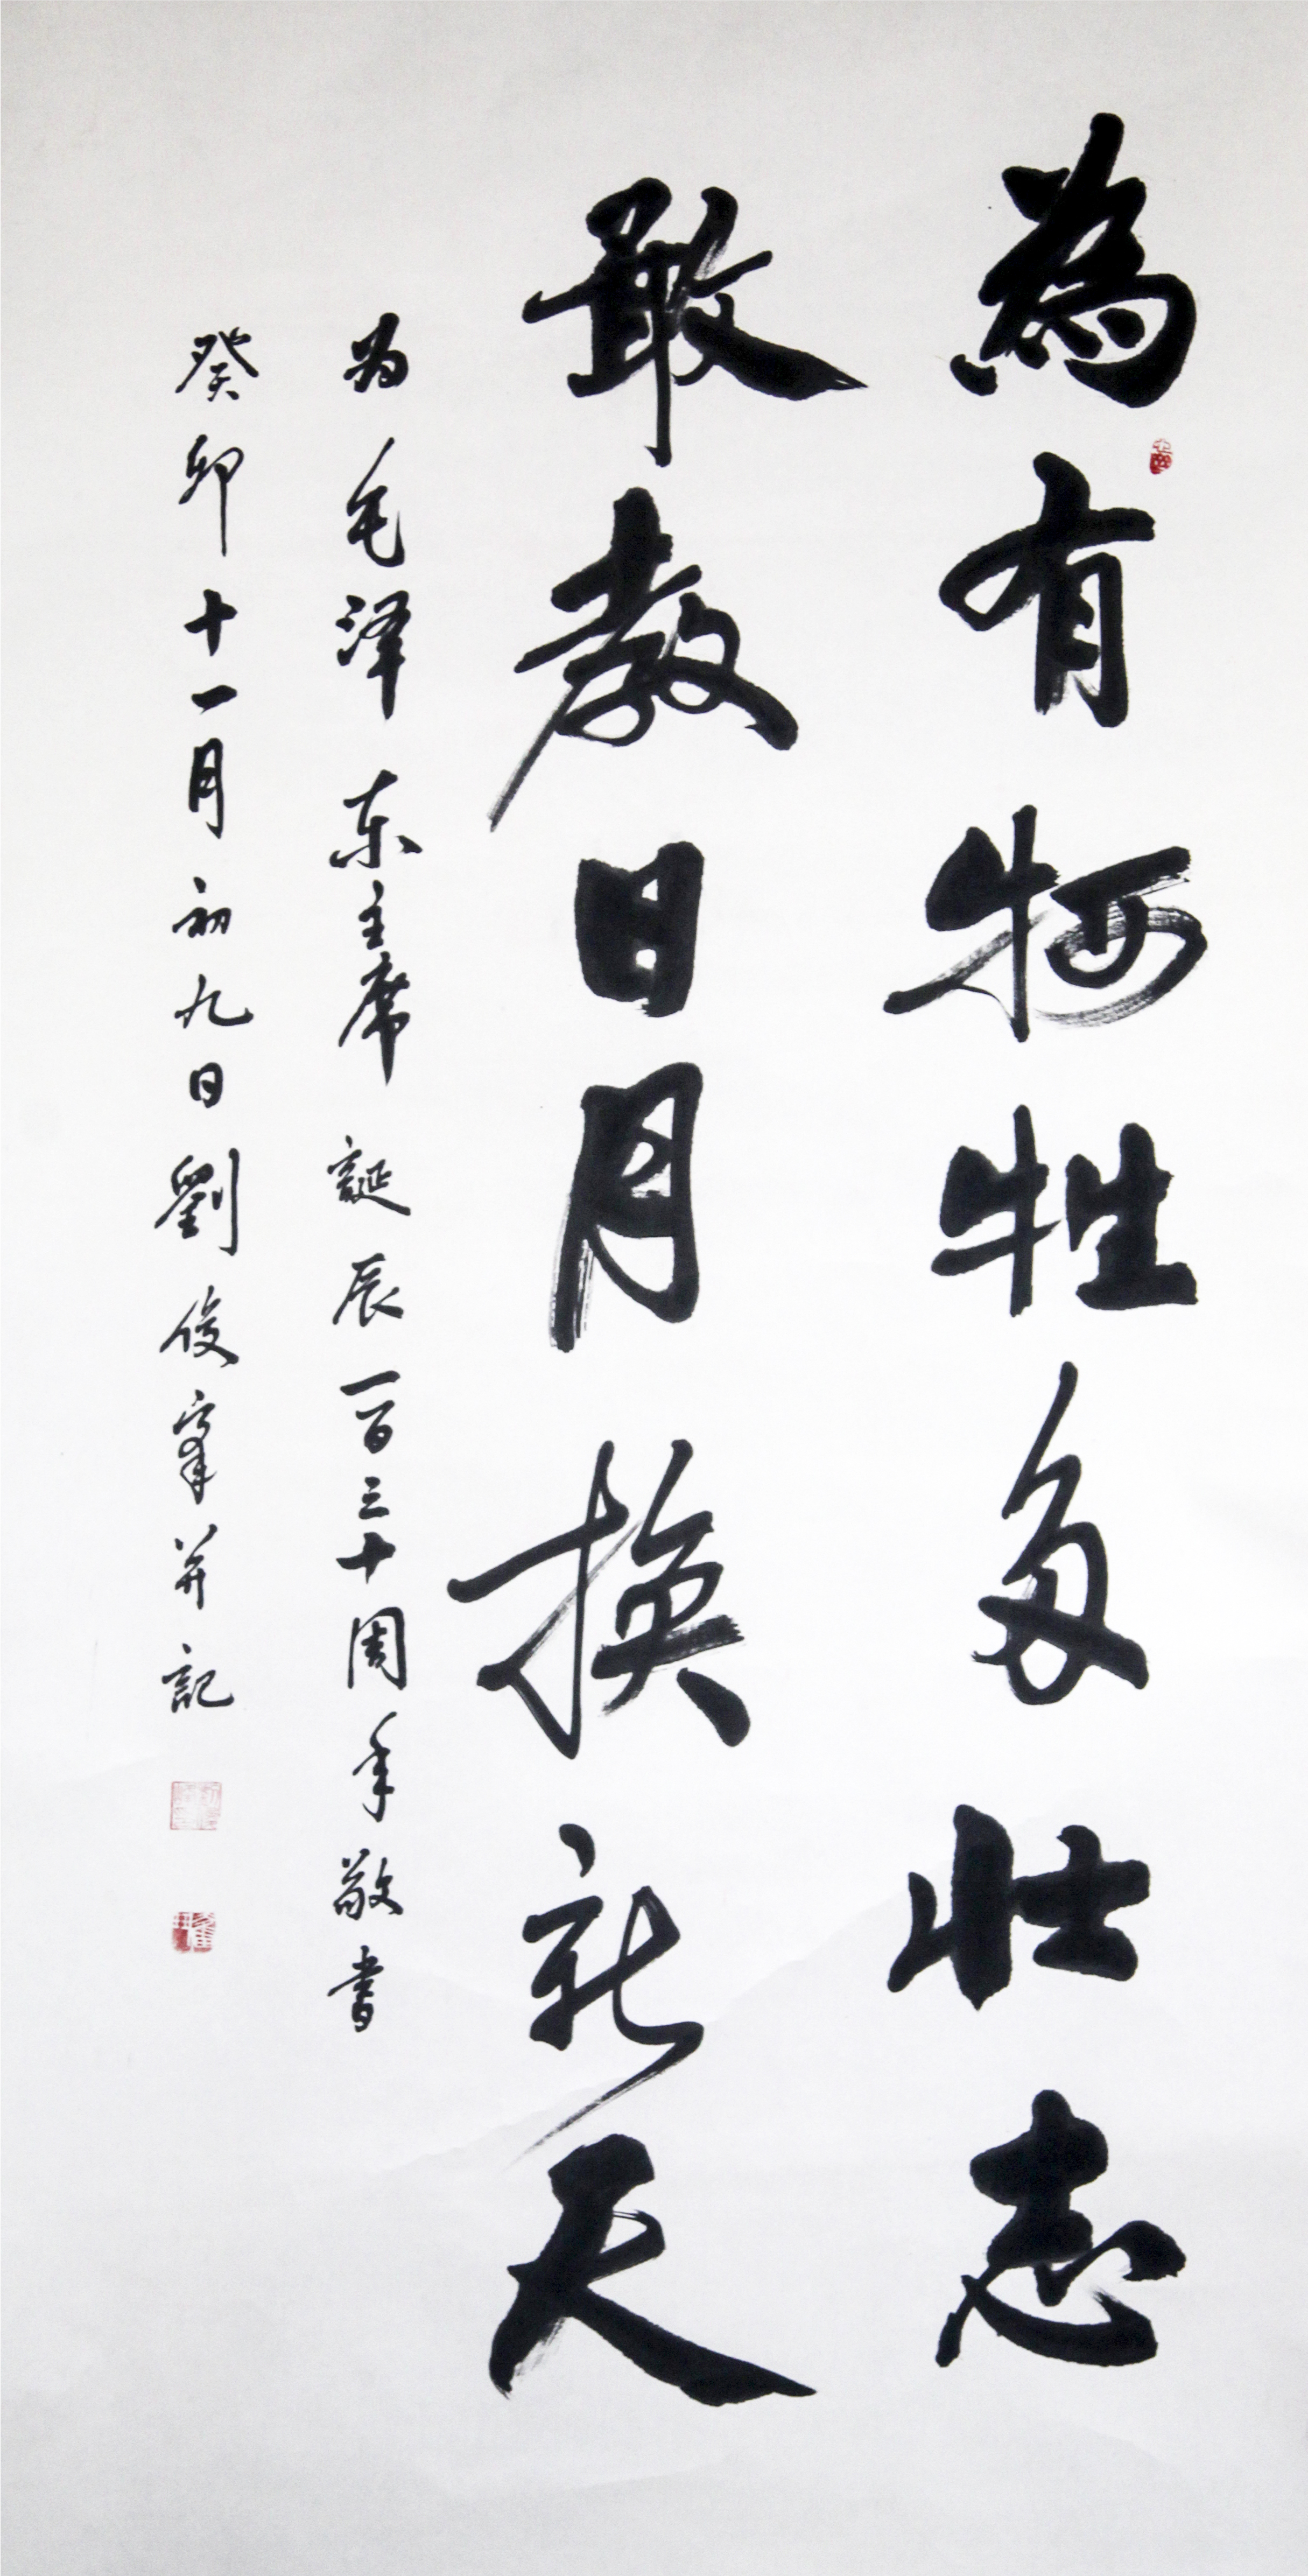 為有牺牲多壮志
敢教日月换新天
为毛泽东主席誕辰一百三十周年敬书
癸卯十一月初九日劉俊峯并記